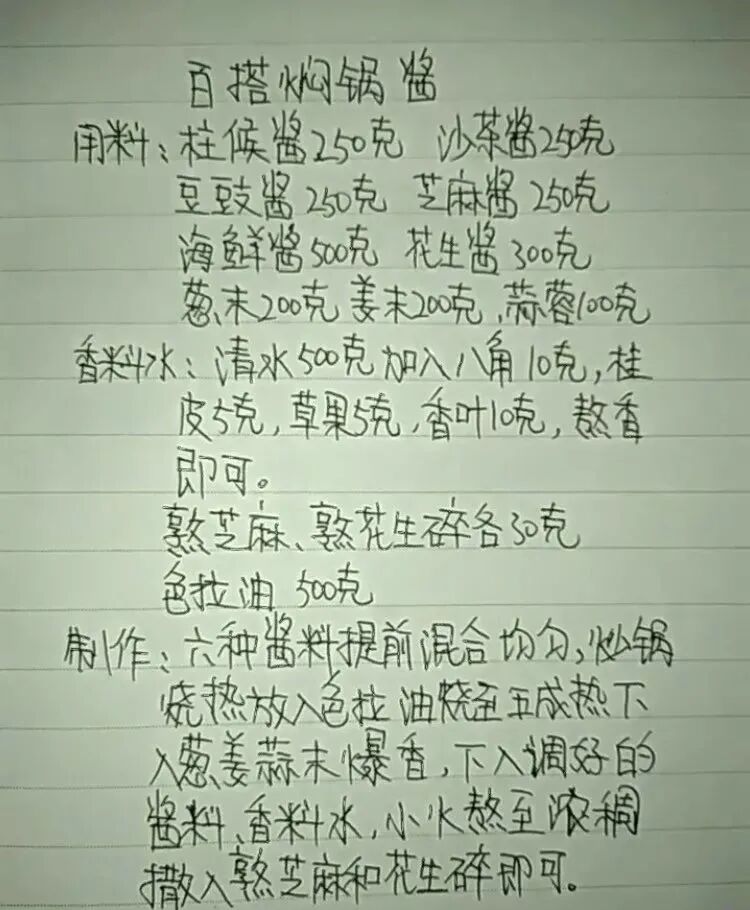 百搭焖锅酱
用料：柱候酱250克 沙茶酱250克
豆豉酱250克 芝麻酱250克
海鲜酱500克 花生酱300克
葱末200克 姜末200克,蒜蓉100克
香料水：清水500克加入八角10克,桂
皮5克,草果5克,香叶10克,熬香
即可。
熟芝麻、熟花生碎各30克
色拉油 500克
制作：六种酱料提前混合均匀,炒锅
烧热放入色拉油烧至五成热下
入葱姜蒜末爆香,下入调好的
酱料、香料水,小火熬至浓稠
撒入熟芝麻和花生碎即可。